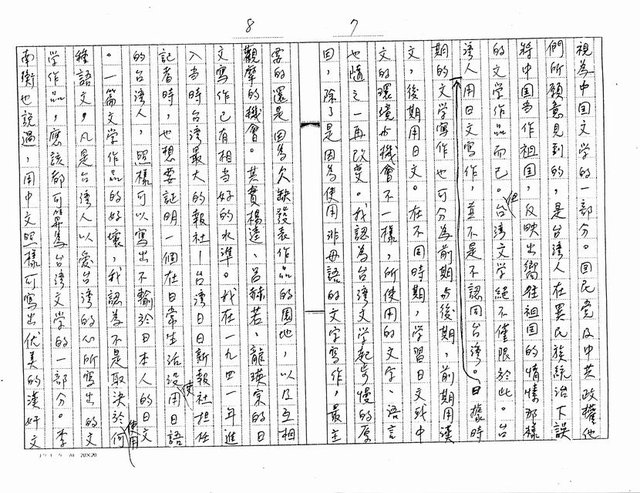 7
視為中国文学的一部分。国民党及中共政權他
們所願意見到的，是台湾人在異民族統治下誤
將中国当作祖国，反映出嚮往祖国的情懷那樣
的文学作品而已。但台湾文学絕不僅限於此。台
湾人用日文写作，並不是不認同台湾。日據時
期的文学寫作也可分為前期与後期，前期用漢
文，後期用日文。在不同時期，学習日文或中
文的環境与機會不一樣，所使用的文字、語言
也隨之一再改变。我認為台湾文学起步慢的原
因，除了是因為使用非母語的文字寫作，最主
8
要的還是因為欠缺發表作品的園地，以及互相
觀摩的機會。其實楊逵、呂赫若、龍瑛宗的日
文寫作已有相当好的水準。我在一九四一年進
入当時台湾最大的報社—台湾日日新報社担任
記者時，也想要証明一個在日常生活沒使用日語
的台湾人，照樣可以寫出不輸於日本人的日文
。一篇文学作品的好壞，我認為不是取決於使用何
種語文。凡是台湾人以愛台湾的心所寫出的文
学作品，應該都可算為台湾文学的一部分。李
南衡也說過，用中文照樣可寫出優美的漢奸文
20X20